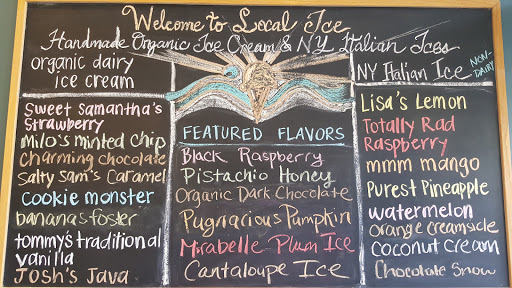 Welcome to Local Ice
Handmade Organic Ice Cream & NY Italian Ices
organic dairy
ice cream
Sweet Samantha's
Strawberry
Milo's minted chip
Charming chocolate
Salty Sam's Caramel
Cookie monster
bananas foster
tommy's traditional
vanilla
Josh's Java
FEATURED FLAVORS
Black Raspberry
Pistachio Honey
Organic Dark Chocolate
Pugnacious Pumpkin
Mirabelle Plum Ice
Cantaloupe Ice
NY Italian Ice NON-
DAIRY
Lisa's Lemon
Totally Rad
Raspberry
mmm mango
Purest Pineapple
watermelon
orange creamsicle
Coconut cream
Chocolate Snow